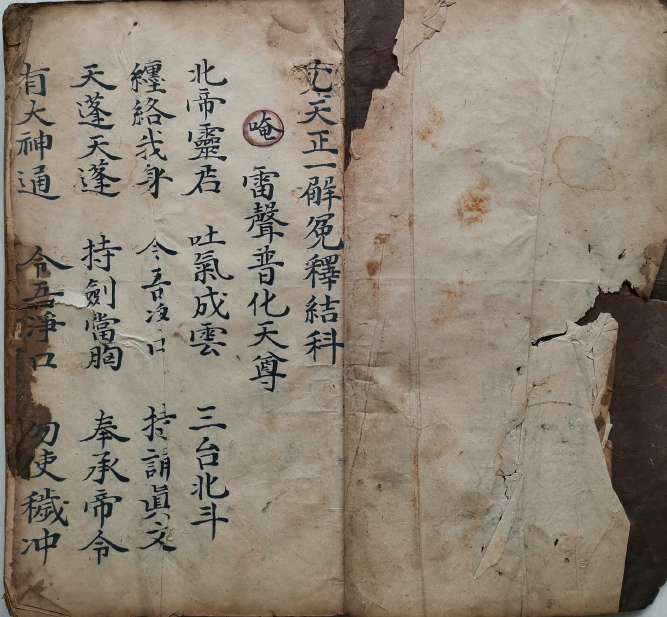 天正一解冤釋結科
唵 雷聲普化天尊
北帝靈君 吐氣成雲 三台北斗
纏絡我身 令吾淨口 持誦眞文
天蓬天蓬 持劍當胸 奉承帝令
有大神通 令吾淨口 勿使穢冲